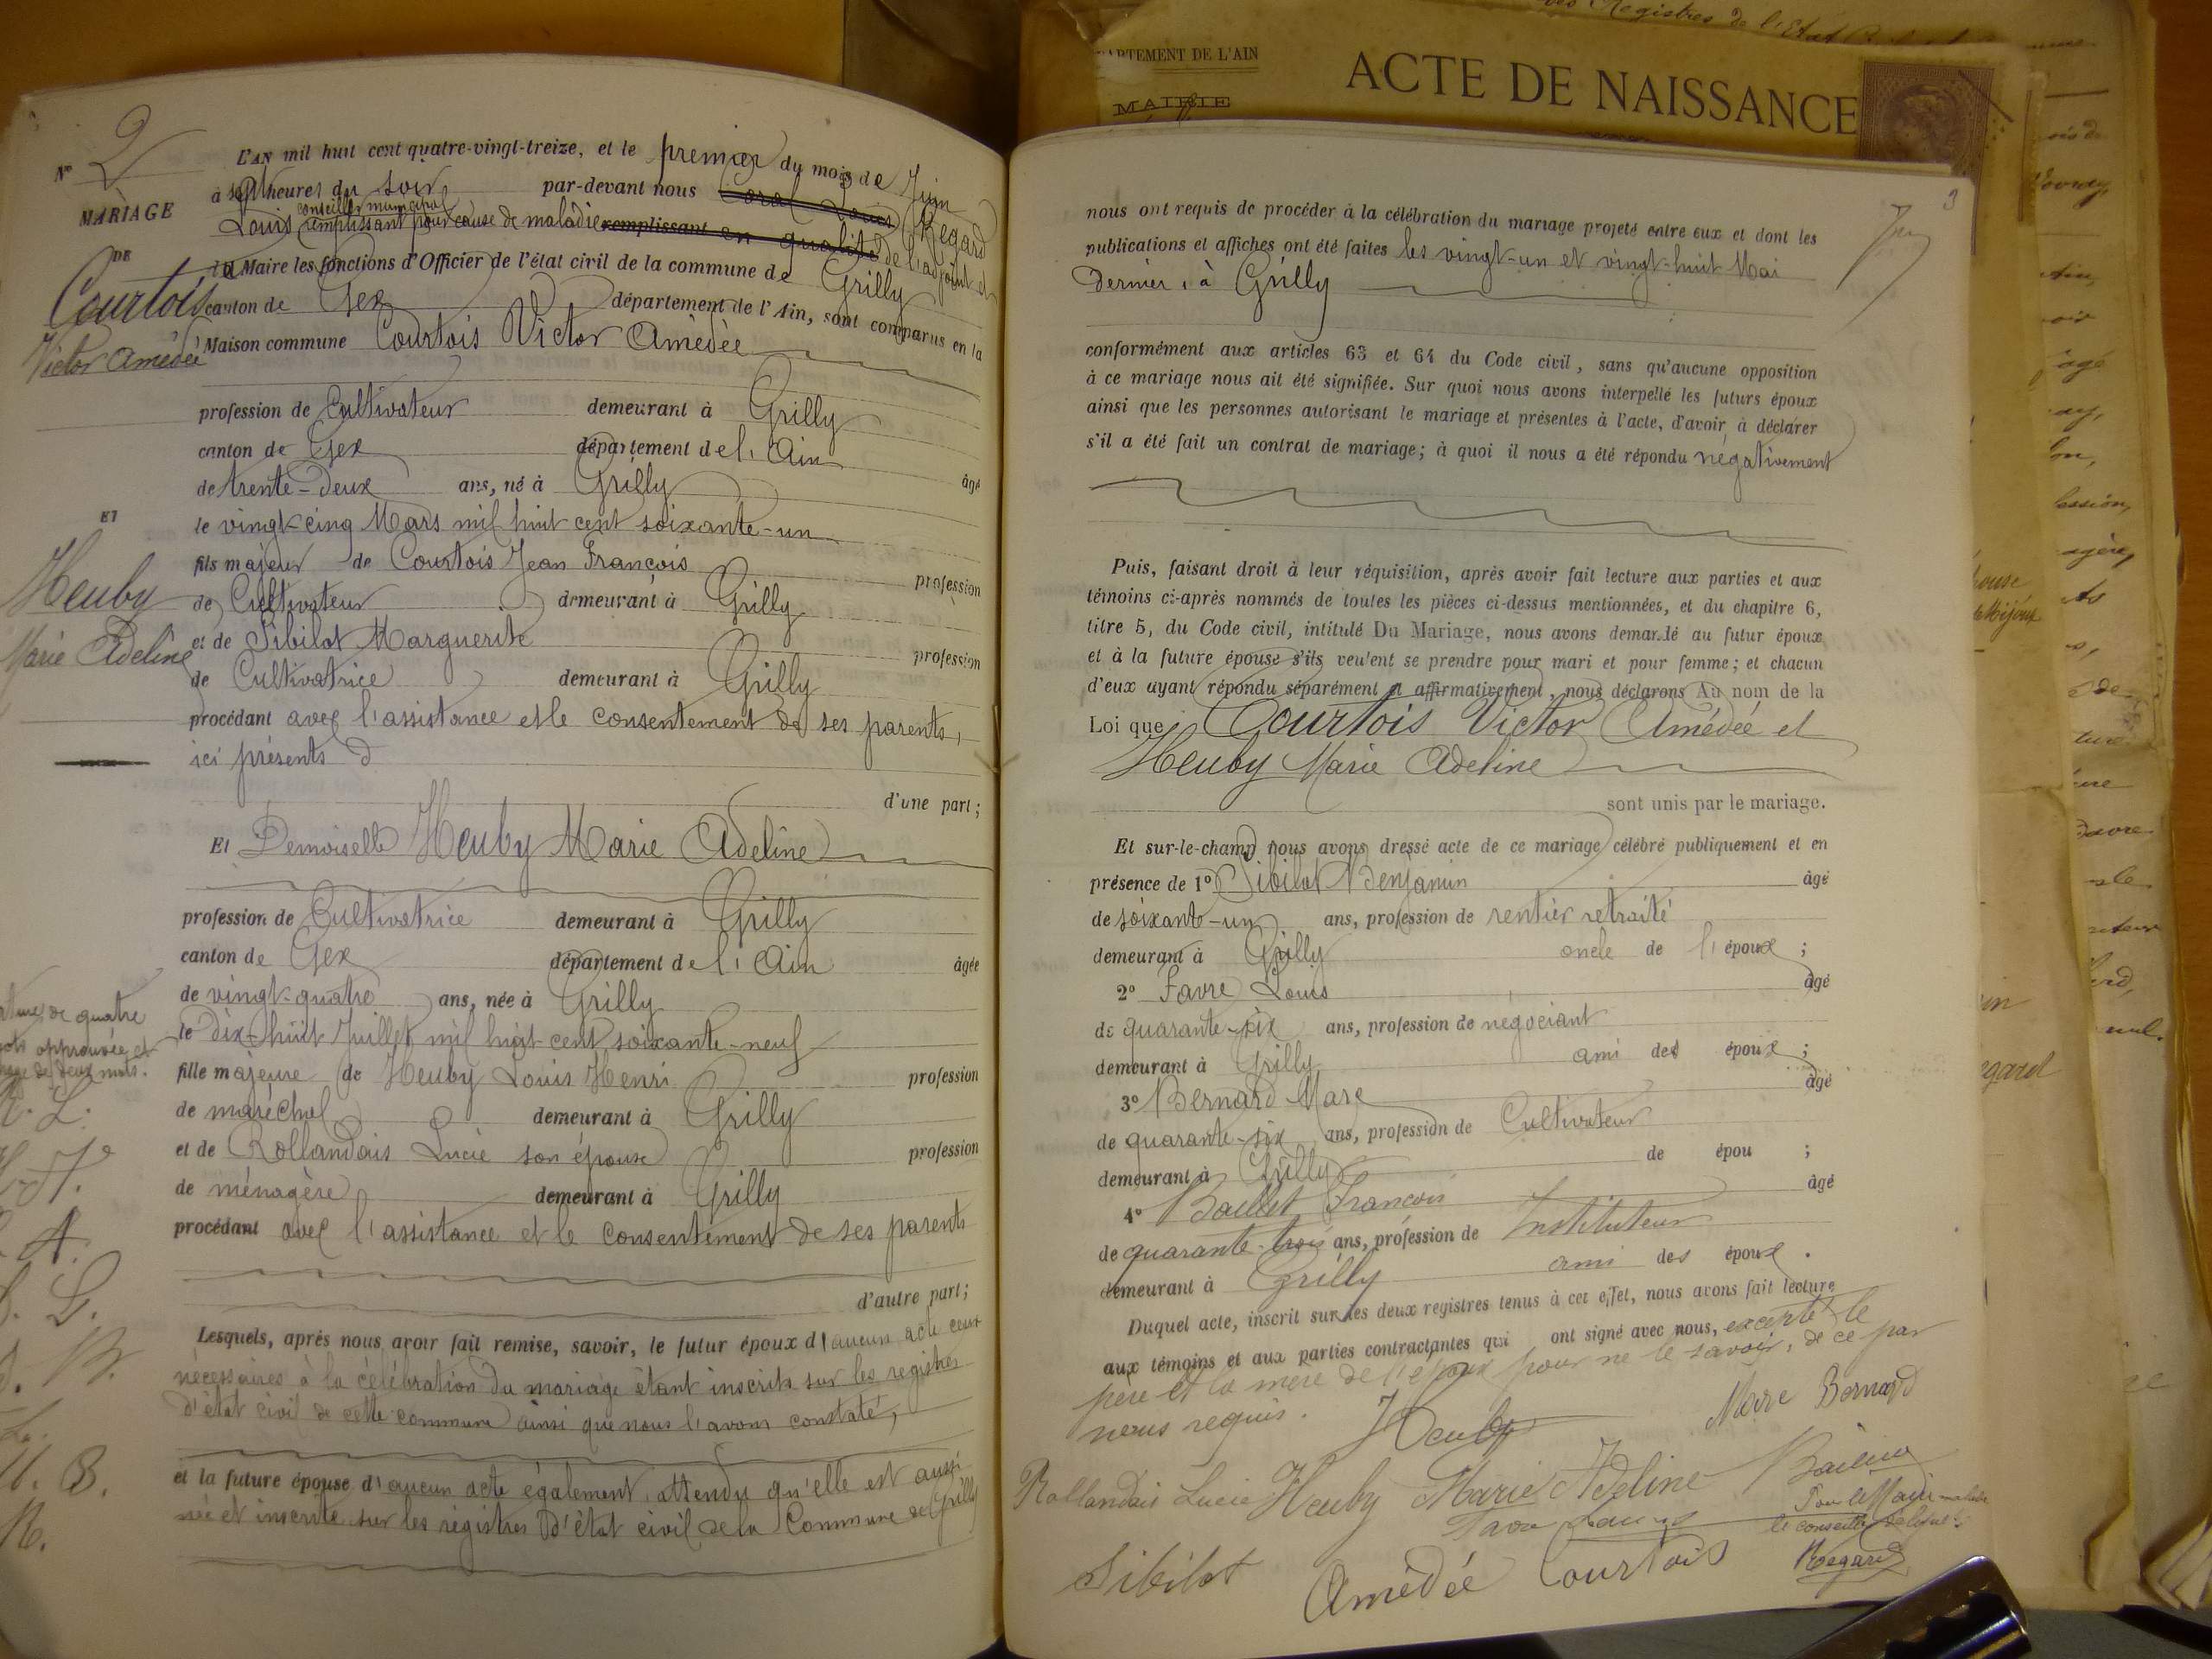 N° 2
MARIAGE
DE
Courtois
Victor Amédée
ET
Heuby
Marie Adeline
L'AN mil huit cent quatre-vingt-treize, et le premier du mois de Juin
à sept heures du soir par-devant nous Regard
Louis conseiller municipal remplissant pour cause de maladie remplissant en qualité de l'adjoint et
du Maire les fonctions d'Officier de l'état civil de la commune de Grilly
canton de Gex département de l'Ain, sont comparus en la
Maison commune Courtois Victor Amédée
profession de Cultivateur demeurant à Grilly
canton de Gex département de l'Ain âgé
de trente-deux ans, né à Grilly
le vingt-cinq Mars mil huit cent soixante-un
fils majeur de Courtois Jean François profession
de Cultivateur demeurant à Grilly
et de Sibilat Marguerite profession
de Cultivatrice demeurant à Grilly
procédant avec l'assistance et le consentement de ses parents,
ici présents
d'une part;
Et Demoiselle Heuby Marie Adeline
profession de Cultivatrice demeurant à Grilly
canton de Gex département de l'Ain âgée
de vingt-quatre ans, née à Grilly
le dix-huit Juillet mil huit cent soixante-neuf
fille majeure de Heuby Louis Henri profession
de maréchal demeurant à Grilly
et de Rollandais Lucie son épouse profession
de ménagère demeurant à Grilly
procédant avec l'assistance et le consentement de ses parents
d'autre part;
Lesquels, après nous avoir fait remise, savoir, le futur époux d'aucun acte ceux
nécessaires à la célébration du mariage étant inscrits sur les registres
d'état civil de cette commune ainsi que nous l'avons constaté,
et la future épouse d'aucun acte également, attendu qu'elle est aussi
née et inscrite sur les registres d'état civil de la Commune de Grilly
de quatre
mots approuvée et
de deux mots.
R. L.
A.
B.
R.
3
nous ont requis de procéder à la célébration du mariage projeté entre eux et dont les
publications et affiches ont été faites les vingt-un et vingt-huit Mai
dernier, à Grilly
conformément aux articles 63 et 64 du Code civil, sans qu'aucune opposition
à ce mariage nous ait été signifiée. Sur quoi nous avons interpellé les futurs époux
ainsi que les personnes autorisant le mariage et présentes à l'acte, d'avoir à déclarer
s'il a été fait un contrat de mariage; à quoi il nous a été répondu négativement
Puis, faisant droit à leur réquisition, après avoir fait lecture aux parties et aux
témoins ci-après nommés de toutes les pièces ci-dessus mentionnées, et du chapitre 6,
titre 5, du Code civil, intitulé Du Mariage, nous avons demandé au futur époux
et à la future épouse s'ils veulent se prendre pour mari et pour femme; et chacun
d'eux ayant répondu séparément et affirmativement, nous déclarons Au nom de la
Loi que Courtois Victor Amédée et
Heuby Marie Adeline
sont unis par le mariage.
Et sur-le-champ nous avons dressé acte de ce mariage célébré publiquement et en
présence de 1° Sibilat Benjamin âgé
de soixante-un ans, profession de rentier retraité
demeurant à Grilly oncle de l'époux ;
2° Favre Louis âgé
de quarante-six ans, profession de négociant
demeurant à Grilly ami des époux ;
3° Bernard Marc âgé
de quarante-six ans, profession de Cultivateur
demeurant à Grilly de épou ;
4° François âgé
de quarante-trois ans, profession de Instituteur
demeurant à Grilly ami des époux .
Duquel acte, inscrit sur les deux registres tenus à cet effet, nous avons fait lecture
aux témoins et aux parties contractantes qui ont signé avec nous, excepté le
père et la mère de l'époux pour ne le savoir, de ce par
nous requis.
Heuby Marc Bernard
Rollandais Lucie Heuby Marie Adeline
Favre Louis Pour le Maire malade
le conseiller délégué
Sibilat Amédée Courtois Regard
DÉPARTEMENT DE L'AIN
MAIRIE
ACTE DE NAISSANCE